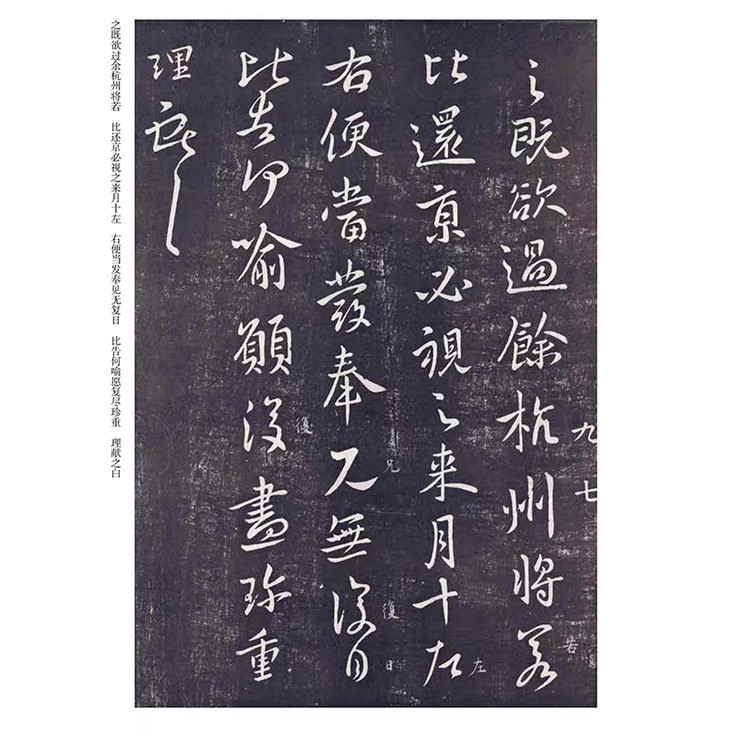 之既欲過餘杭州將若
九七
若
比還京必視之来月十左
左
右便當發奉見無復日
兄
復
日
比告何喻願復盡珍重
復
理
之既欲过余杭州将若 比还京必视之来月十左 右便当发奉见无复日 比告何喻愿复尽珍重 理献之白